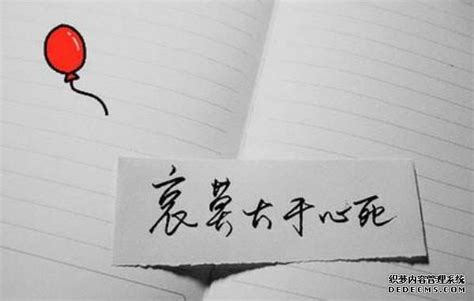 哀莫大于心死
织梦内容管理系统
DEDECMS.COM